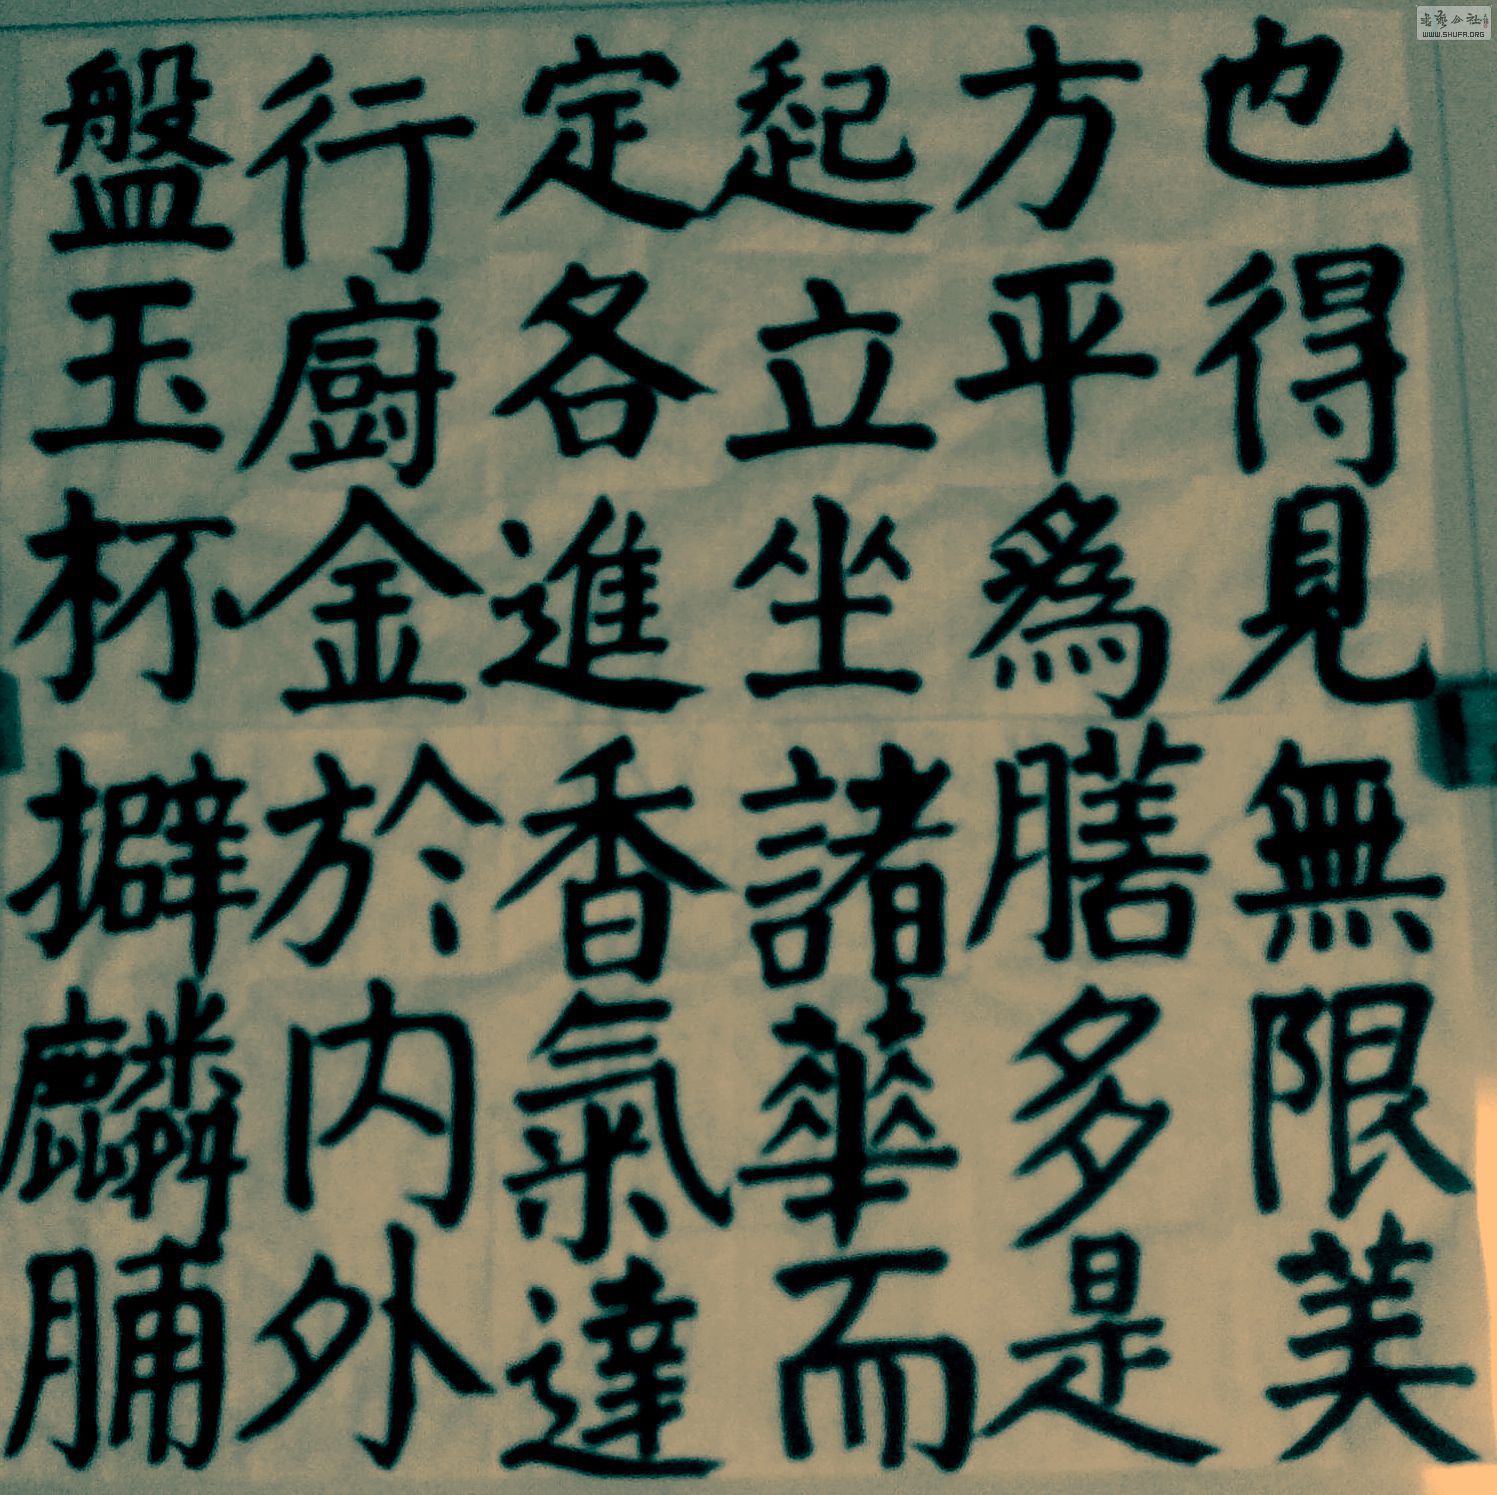 也得見
方平爲
起立坐
定各進
行廚金
盤玉杯
無限美
膳多是
諸華而
香氣達
於内外
擗麟脯
WWW.SHUFA.ORG